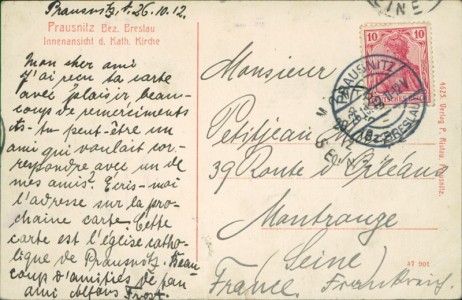 Prausnitz d. 26.10.12.
Prausnitz Bez. Breslau
Innenansicht d. Kath. Kirche
Mon cher ami
J'ai reçu ta carte
avec plaisir beau-
coup de remerciments
as-tu peut-être un
ami qui voulait cor-
respondre avec un de
mes amis? Ecris-moi
l'adresse sur la pro-
chaine carte. Cette
carte est l'église catho-
lique de Prausnitz. Beau
coup d'amitiés de ton
ami Alfons Frost.
EINE
10 10
PRAUSNITZ
(Bz. BRESLAU)
Monsieur
Petitjean
39 Route d'Orléans
Montrouge
(Seine)
France Frankreich
4625 Verlag P.
Prausnitz.
4T 901